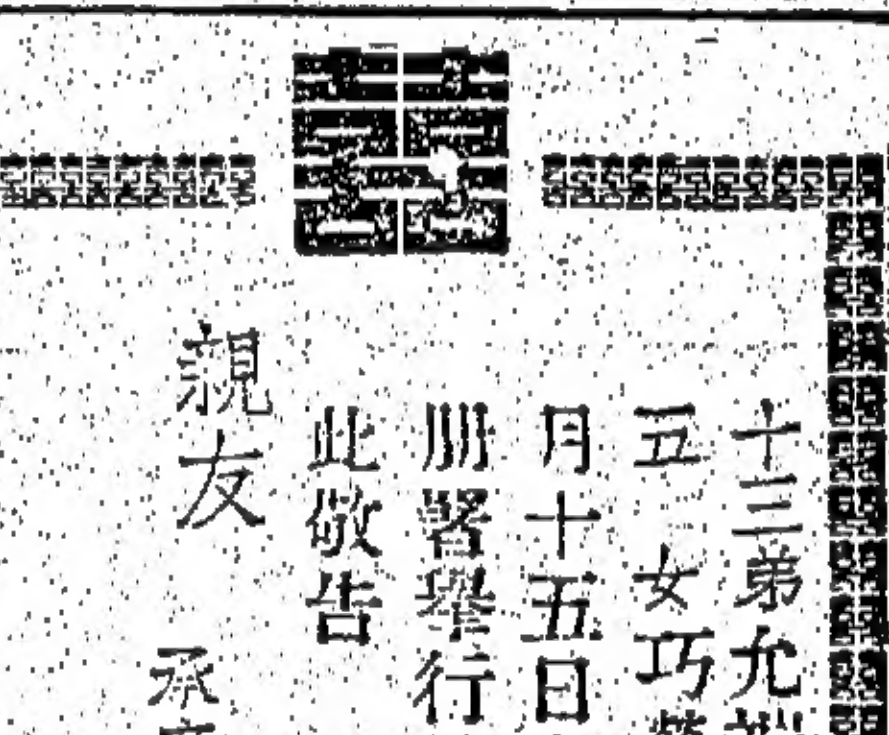 囍
十三弟允
五女巧
月十五日
川署舉行
此敬告
親友 承